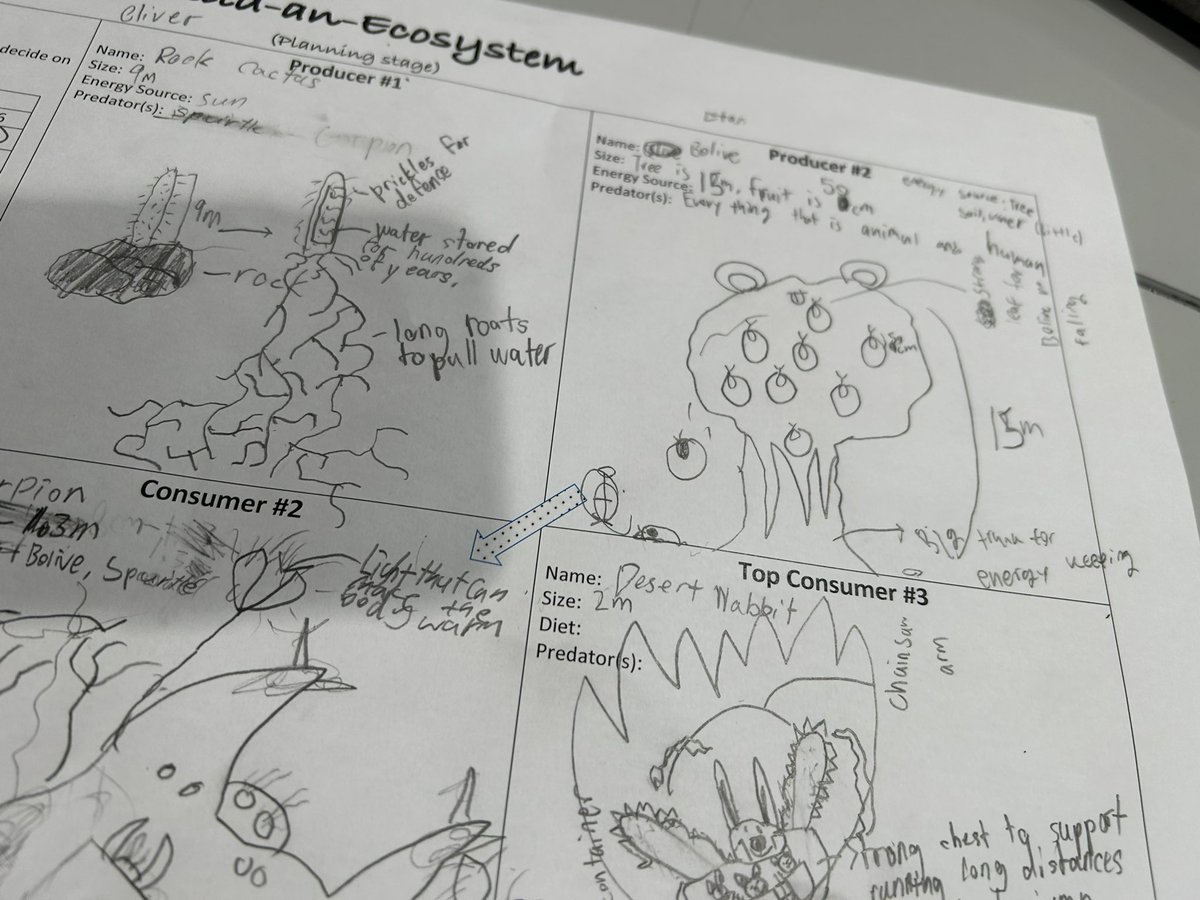 Oliver
-an-Ecosystem
(Planning stage)
decide on
Producer #1
Name: Rock Cactus
Size: 9M
Energy Source: Sun
Predator(s):
9m
prickles for
defence
water stored
for hundreds
of years.
roc
long roats
to pull water
Stan
Producer #2
Name: Bolive
Size: Tree is 15m, fruit is 58cm
Energy Source:
energy source: Tree
soil,
Predator(s): Every thing that is animal and human
strong
leaf for
Bolive
faling
15m
Big
for
energy
Consumer #2
rpion
3m
Bolive,
Light that can
make
the
warm
Top Consumer #3
Name: Desert Nabbit
Size: 2m
Diet:
Predator(s):
chainsaw
arm
ontainer
strong chest to support
running long distances